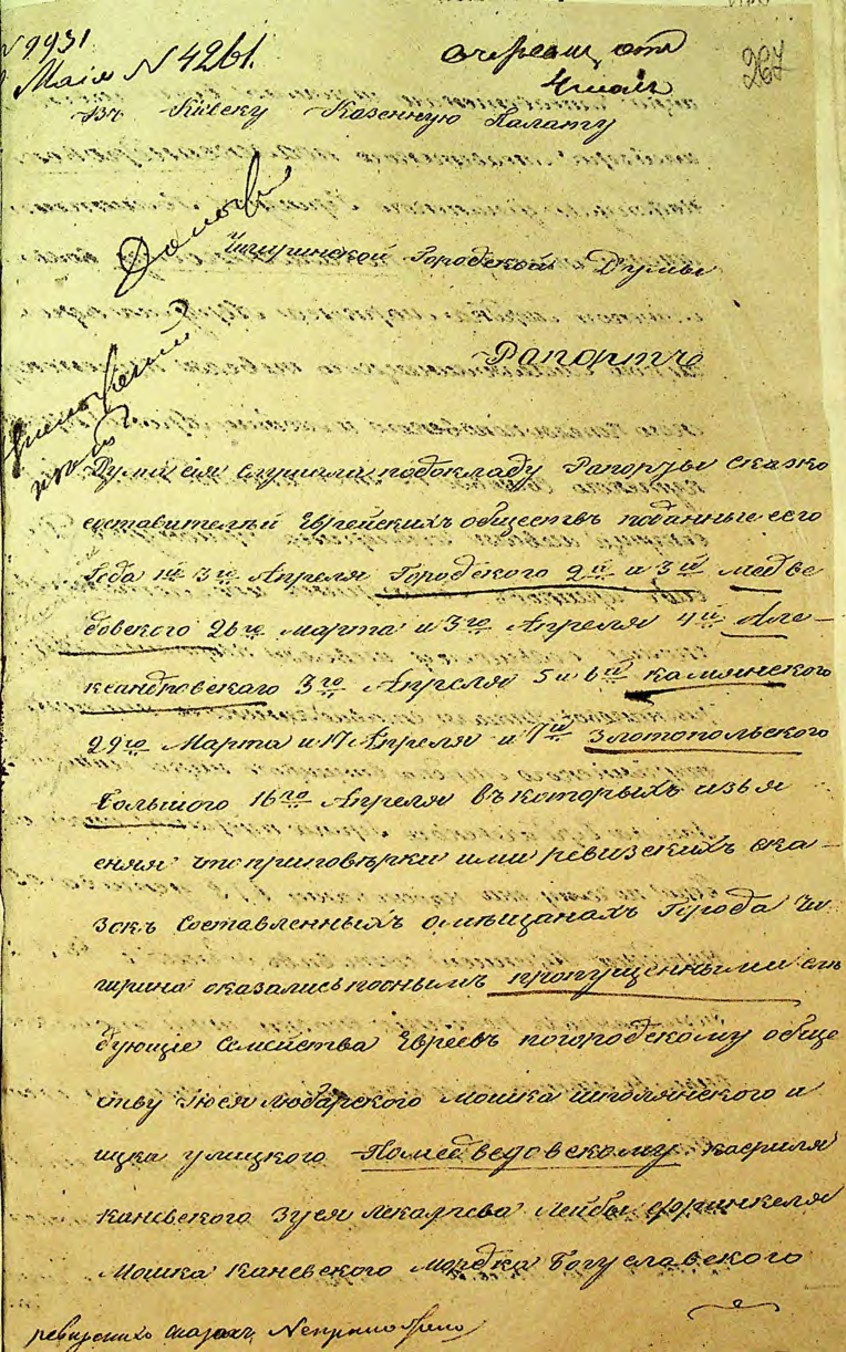 N 9931
Маія N 4261.
267
Въ Кіевску Казенную Палату
Чигиринской Городской Думы
Рапортъ
Дума сія слушали по докладу Рапорты сказко
составителей Еврейскихъ обществъ поданные сего
Года 1й 3го Апреля Городского 2й и 3й медве
довского 26го Марта и 3го Апреля 4й Але-
ксандровскаго 3го Апреля 5 и 6й камянского
29го Марта и 17 Апреля и 7й Златопольского
большого 16го Апреля въ которыхъ изъя
сняя что приповѣрки ими ревизскихъ ска-
зокъ составленныхъ омѣщанахъ Города Чи
гирина оказались поонымъ пропущенными слѣ
дующіе Семейства Евреевъ погородскому обще
ству Іося любарского мошка шполянского и
ицка улицкого Помедведовскому касриля
каневского Зуся лекарева Лейбы франкеля
Мошка каневского мордка Богуславского
ревизскихъ сказахъ